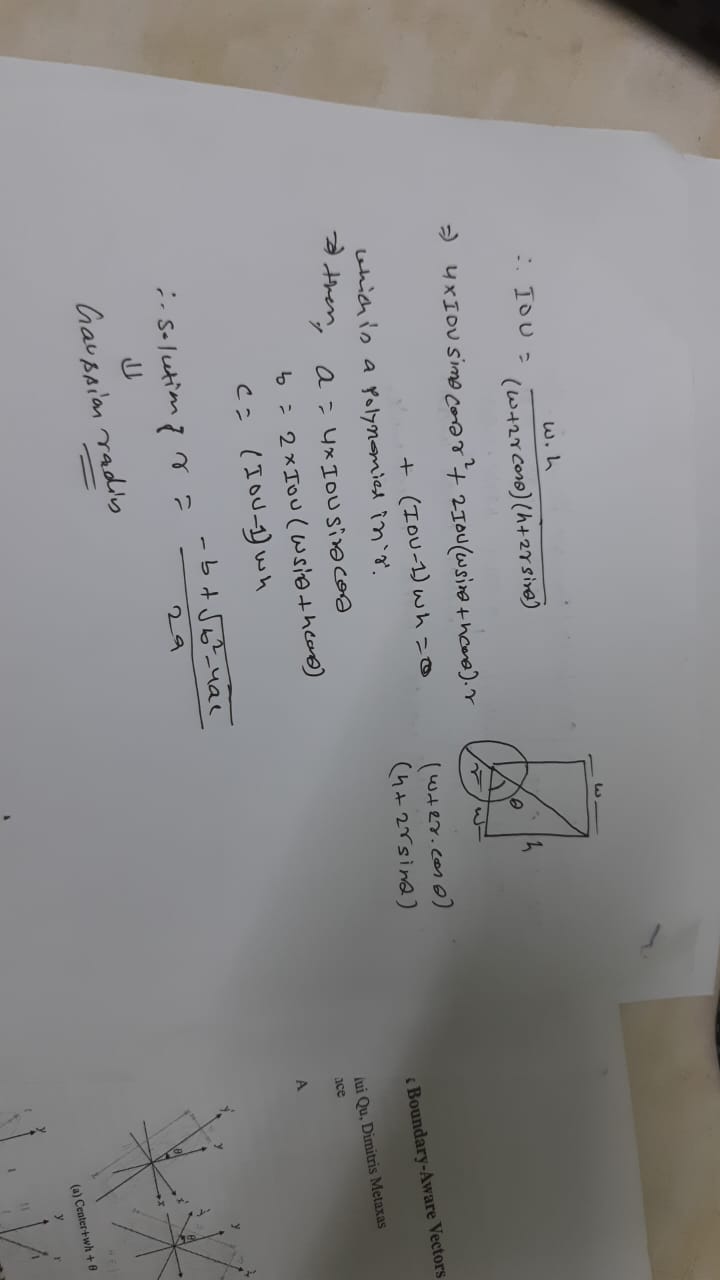 ∴ IOU = w.h / (w+2r cosθ)(h+2r sinθ)
⇒ 4×IOU sinθ cosθ r² + 2IOU(w sinθ + h cosθ).r
+ (IOU-1) wh = 0
which is a polynomial in 'r'.
⇒ then, a = 4×IOU sinθ cosθ
b = 2×IOU (w sinθ + h cosθ)
c = (IOU-1) wh
∴ solution of r = -b + √b²-4ac / 2a
⇓
Gaussian radius
w
h
θ
r
w
(w+2r. cosθ)
(h+2r sinθ)
Boundary-Aware Vectors
Qu, Dimitris Metaxas
A
y'
y
θ
x'
x
y
θ
(a) Center+wh + θ
y
y